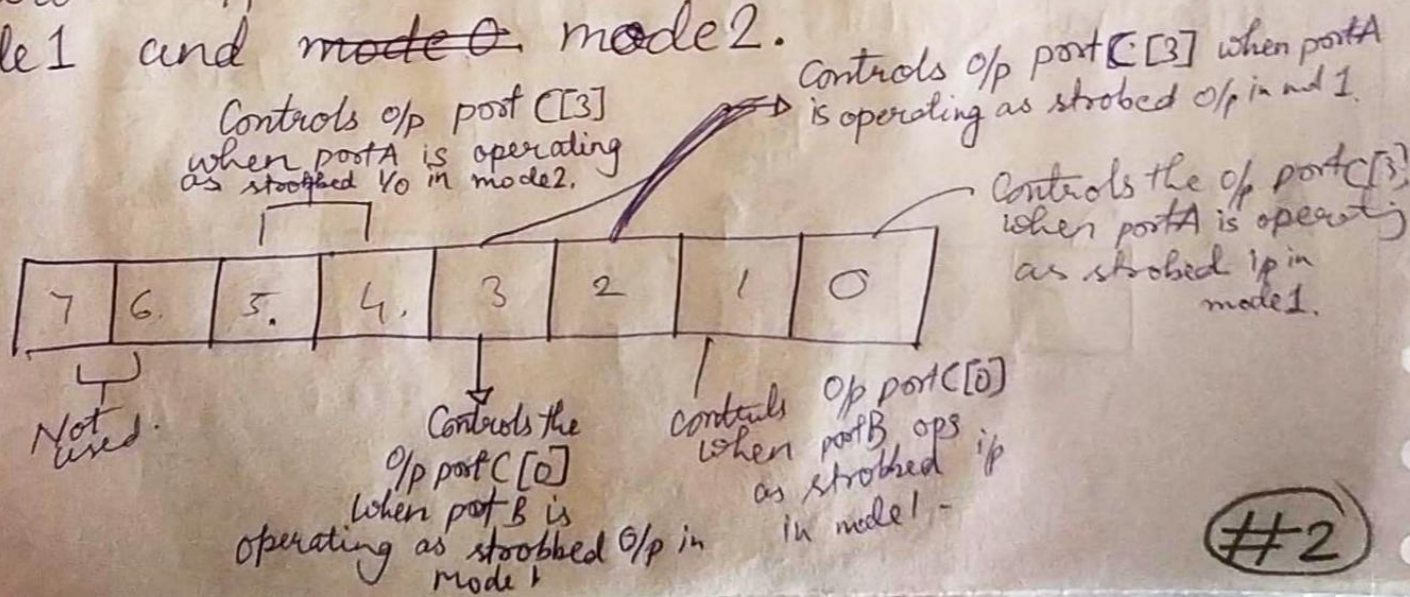 le1 and mode 0. mode2.
Controls o/p port C[3]
when portA is operating
as strobbed I/o in mode2.
Controls o/p port C[3] when portA
is operating as strobed o/p in md 1.
Controls the o/p portC[3]
when portA is operating
as strobed i/p in
mode1.
7 6. 5. 4. 3 2 1 0
Not
used.
Controls the
o/p port C [0]
when port B is
operating as stoobbed o/p in
mode 1
controls o/p port C[0]
when port B ops
as strobbed i/p
in mode1 -
#2